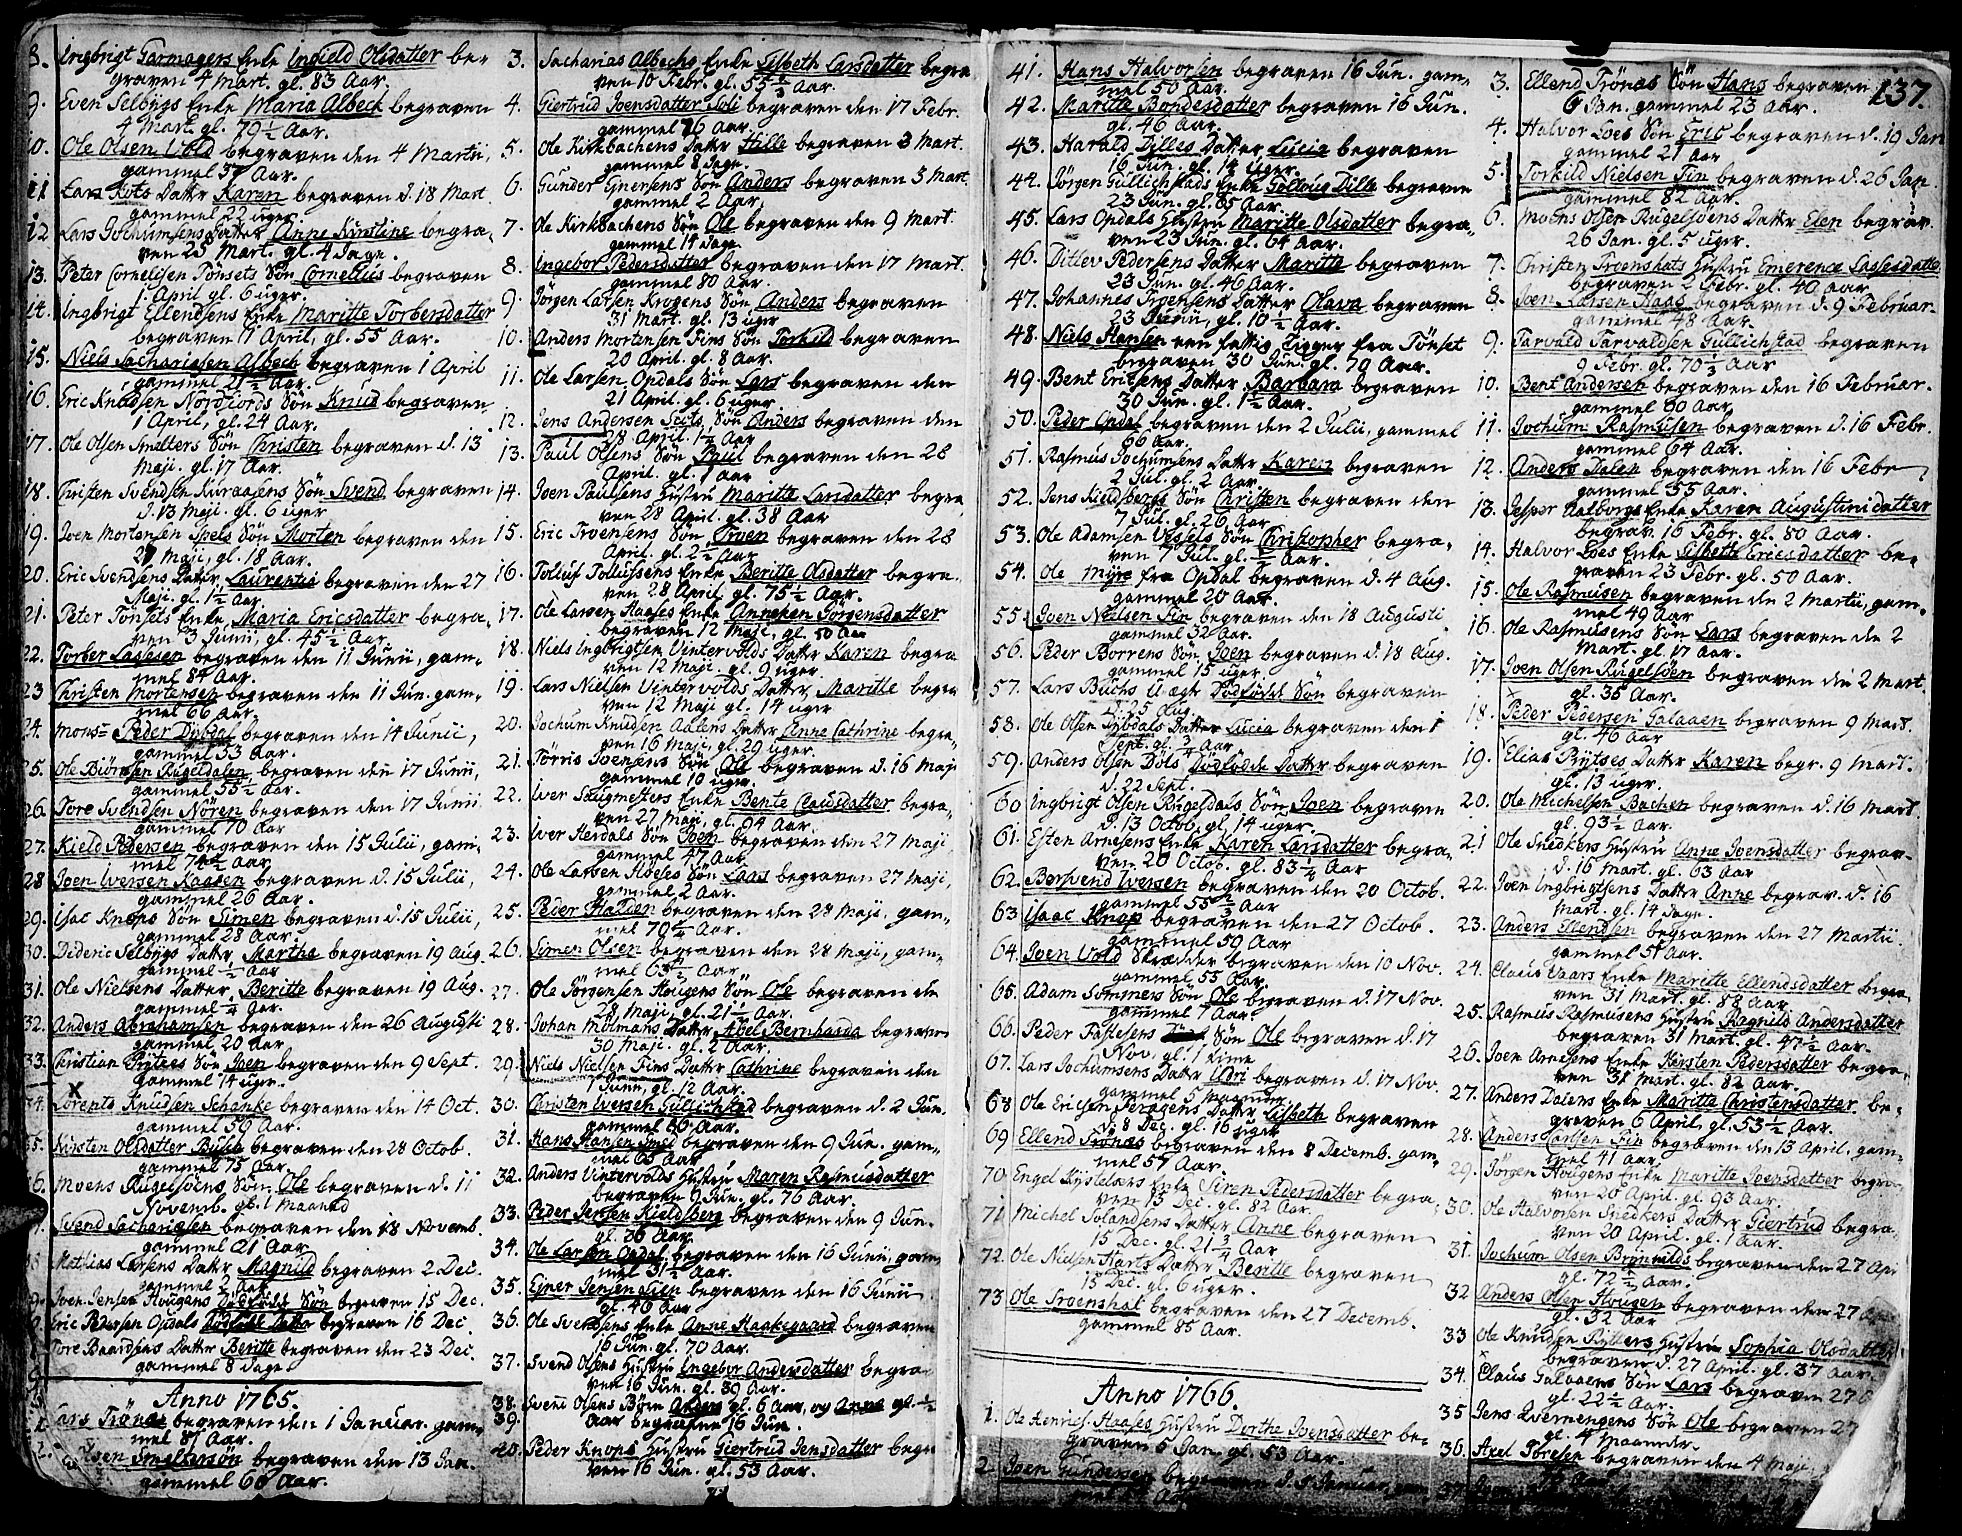 8. Ingbrigt Garmagers Enke Ingield Olsdatter be-
graven 4 Mart. gl. 83 Aar.
9. Even Selbygs Enke Maria Albeck begraven
4 Mart. gl. 79½ Aar.
10. Ole Olsen Vold begraven den 4 Martii,
gammel 57 Aar.
11 Lars Kots Datter Karen begraven d. 18 Mart.
gammel 22 uger.
12 Lars Jochumsens Datter Anne Kirstine begra-
ven 25 Mart. gl. 4 Dage.
13. Peter Cornelisen Tønsets Søn Cornelius begraven
1. April gl. 6 uger.
14. Ingbrigt Ellendsens Enke Maritte Torbersdatter
begraven 1 April, gl. 55 Aar.
15. Niels Sachariasen Albech begraven 1 April
gammel 21½ Aar.
16. Eric Knudsen Nordfiords Søn Knud begraven
1 April, gl. 24 Aar.
17. Ole Olsen Smelters Søn Christen begraven d. 13
Maji. gl. 17 Aar.
18. Christen Svendsen Kuraasens Søn Svend begraven
d. 13 Maji. gl. 6 uger
19. Joen Mortensen Spels Søn Morten begraven den
27 Maji, gl. 18 Aar.
20. Eric Svendsens Datter Laurentia begraven den 27
Maji. gl. 1½ Aar
21. Peter Tønsets Enke Maria Ericsdatter begra-
ven 3 Junii, gl. 45½ Aar.
22. Torber Lassesen begraven den 11 Junii, gam-
mel 84 Aar.
23 Christen Mortensen begraven den 11 Jun. gam-
mel 66 Aar.
24. Mons= Peder Dybdal begraven den 14 Junii,
gammel 53 Aar.
25. Ole Biørnsen Rugeldalen begraven den 17 Junii,
gammel 55½ Aar.
26. Tore Svendsen Nøren begraven den 17 Junii
gammel 70 Aar
27. Kield Pedersen begraven den 15 Julii, gam-
mel 74½ Aar
28 Joen Iversen Kaasen begraven d. 15 Julii,
gammel 26 Aar.
29. Isac Knops Søn Simen begraven d. 15 Julii,
gammel 28 Aar.
30. Dideric Selbygs Datter Marthe begraven 19 Aug.
gammel ½ Aar
31. Ole Nielsens Datter Beritte begraven 19 Aug.
gammel ¼ Aar.
32. Anders Abrahamsen begraven den 26 Augusti
gammel 20 Aar.
33. Christian Rytees Søn Joen begraven den 9 Sept.
gammel 14 uger.
X
34. Lorents Knudsen Schanke begraven den 14 Oct.
gammel 59 Aar.
35. Kirsten Olsdatter Busk begraven den 28 Octob.
gammel 75 Aar.
36. Moens Rugelsøens Søn Ole begraven d. 11
Novemb. gl. 1 Maaned
Svend Sachariesen begraven den 18 Novemb.
gammel 21 Aar.
38 Mathias Larsens Datter Magnild begraven 2 Dec.
gammel 2 Aar
Joen Jensen Hougans Dødfødde Søn begraven 15 Dec.
Eric Pedersen Opdals Dødfødde Datter begraven 16 Dec.
Tore Baardsens Datter Beritte begraven den 23 Dec.
gammel 8 Dage.
Anno 1765.
1. Lars Trønes begraven den 1 Januar. gam-
mel 87 Aar.
2. Olsen Smeltersøn begraven den 13 Jan.
gammel 66 Aar.
3. Sacharias Albechs Enke Lisbeth Larsdatter begra-
ven 10 Febr. gl. 55 Aar.
4. Giertrud Joensdatter Soli begraven den 17 Febr.
gammel 76 Aar.
5. Ole Kirkbachens Datter Hille begraven 3 Mart.
gammel 8 Dage.
6. Gunder Ejnersens Søn Anders begraven 3 Mart
gammel 2 Aar.
7. Ole Kirkbachens Søn Ole begraven den 9 Mart.
gammel 14 Dage.
8. Ingebor Pedersdatter begraven den 17 Mart.
gammel 80 Aar.
9. Jørgen Larsen Krogens Søn Anders begraven
31 Mart. gl. 13 uger
10. Anders Mortensen Fins Søn Torkild begraven
20 April. gl. 8 Aar.
11. Ole Larsen Opdals Søn Lars begraven den
21 April. gl. 6 uger
12. Jens Andersen Scits Søn Anders begraven den
28 April. 1½ Aar
13. Paul Olsens Søn Paul begraven den 28
April. gl. 1 Aar
14. Joen Paulsens Hustru Maritte Larsdatter begra-
ven 28 April. gl. 38 Aar
15. Eric Troensens Søn Troen begraven den 28
April. gl. 2½ Aar
16. Tolluf Tollufsens Enke Beritte Olsdatter begra-
ven 28 April. gl. 75½ Aar.
17. Ole Larsen Haases Enke Anneken Jørgensdatter
begraven 12 Maji, gl. 50 Aar
18. Niels Ingbrigtsen Vintervolds Datter Karen begra-
ven 12 Maji. gl. 9 uger.
19. Lars Nielsen Vintervolds Datter Maritte begra-
ven 12 Maji gl. 14 uger
20. Jochum Knudsen Aalens Datter Anne Cathrine begra-
ven 16 Maji, gl. 29 uger.
21. Tørris Joensens Søn Ole begraven d. 16 Maji
gammel 10 uger.
22. Iver Saugmesters Enke Bente Clausdatter begra-
ven 27 Maji, gl. 94 Aar.
23. Iver Herdals Søn Joen begraven den 27 Maji,
gammel 47 Aar.
24. Ole Larsen Floeses Søn Lars begraven 27 Maji,
gammel 2 Aar.
25. Peder Halden begraven den 28 Maji, gam-
mel 70¼ Aar.
26. Simen Olsen begraven den 28 Maji, gam-
mel 63½ Aar
27. Ole Jørgensen Hougens Søn Ole begraven de
28 Maji, gl. 21½ Aar.
28. Johan Molmans Datter Abel Bernharda begraven
30 Maji. gl. 2 Aar.
29. Niels Nielsen Fins Datter Cathrine begraven den
7 Junii, gl. 12 Aar.
30. Christen Iversen Gullichstad begraven d. 2 Jun.
gammel 66 Aar.
31. Hans Hansen Smed begraven den 9 Jun. gam-
mel 65 Aar
32. Anders Vintervolds Hustru Maren Rasmusdatter
begraven 9 Jun. gl. 76 Aar.
33. Peder Jensen Kieldsberg begraven den 9 Jun.
gl. 66 Aar.
34. Ole Larsen Opdal begraven den 16 Junii, gam-
mel 31½ Aar.
35. Ejner Jensen Lien begraven den 16 Junii
gl. 46 Aar
36. Ole Svendsens Enke Anne Haakegaard begraven
16 Jun. gl. 70 Aar.
37. Svend Olsens Hustru Ingebor Andersdatter begra-
ven 16 Jun. gl. 39 Aar.
38. Svend Olsens Børn Anders gl. 6 Aar, og Anne gl. ½
39. Aar begravne 16 Jun.
40. Peder Knops Hustru Giertrud Jensdatter begra-
ven 16 Jun. gl. 53 Aar.
41. Hans Halvorsen begraven 16 Jun. gam-
mel 50 Aar.
42. Maritte Bondesdatter begraven 16 Jun.
gl. 46 Aar.
43. Harald Dilles Datter Lucia begraven
16 Jun. gl. 14 uger.
44. Jørgen Gullichstads Enke Solloug Dille begraven
23 Jun. gl. 85 Aar.
45. Lars Opdals Hustru Maritte Olsdatter begra-
ven 23 Jun. gl. 64 Aar.
46. Ditlev Pedersens Datter Maritte begraven
23 Jun. gl. 46 Aar.
47. Johannes Troensens Datter Olava begraven
23 Junii, gl. 10½ Aar.
48. Niels Hansen een fattig Tigger fra Tønset
begraven 30 Jun. gl. 70 Aar.
49. Bent Ericsens Datter Barbara begraven
30 Jun. gl. 1½ Aar.
50. Peder Opdal begraven den 2 Julii, gammel
66 Aar.
51. Rasmus Jochumsens Datter Karen begraven
2 Jul. gl. 2 Aar.
52. Jens Kieldsbergs Søn Christen begraven den
7 Jul. gl. 26 Aar
53. Ole Adamsen Vessels Søn Christopher begra-
ven 7 Jul. gl. ½ Aar.
54. Ole Myre fra Opdal begraven d. 4 Aug.
gammel 20 Aar.
55. Joen Nielsen Fin begraven den 18 Augusti
gammel 32 Aar.
56. Peder Borrens Søn Joen begraven d. 18 Aug.
gammel 15 uger.
57. Lars Buchs Uægte Dødfødde Søn begraven
d. 25 Aug.
58. Ole Olsen Dybdals Datter Lucia begraven den 1
Sept. gl. ¾ Aar
59. Anders Olsen Døls Dødfødde Datter begraven
d. 22 Sept.
60 Ingbrigt Olsen Rugeldals Søn Joen begraven
d. 13 Octob. gl. 14 uger.
61. Esten Arnesens Enke Karen Larsdatter begra-
ven 20 Octob. gl. 83¼ Aar
62. Bersvend Iversen begraven den 20 Octob.
gammel 55 Aar
63 Isaac Knop begraven den 27 Octob.
gammel 59 Aar
64. Joen Vold Skrædder begraven den 10 Nov.
gammel 55 Aar.
65. Adam Sommers Søn Ole begraven d. 17 Nov.
gammel 7 Aar.
66. Peder Fastesens Søn Ole begraven d. 17
Nov. gl. 1 Time
67. Lars Jochumsens Datter Udri begraven d. 17 Nov.
gammel 5 Maaneder
68 Ole Ericsen Feragens Datter Lisbeth begraven
8 Dec. gl. 16 uger
69 Ellend Trønæs begraven den 8 Decemb. gam-
mel 57 Aar.
70 Engel Kystelars Enke Siren Pedersdatter begra-
ven 15 Dec. gl. 82 Aar.
71 Michel Solandsens Datter Anne begraven
15 Dec. gl. 21¾ Aar
72. Ole Nielsen Harts Datter Beritte begraven
15 Dec. gl. 6 uger.
73 Ole Troenshat begraven den 27 Decemb.
gammel 85 Aar.
Anno 1766.
1. Ole Henrics. Haases Hustru Dorthe Joensdatter be-
graven 5 Jan. gl. 53 Aar.
2. Joen Gundersen begraven d. 5 Januar, gam-
137.
3. Ellend Trønæs Søn Hans begraven
6 Jan. gammel 23 Aar.
4. Halvor Loes Søn Eric begraven d. 19 Jan
gammel 21 Aar
5. Torkild Nielsen Fin begraven d. 26 Jan.
gammel 82 Aar.
6. Moens Olsen Rugelsøens Datter Elen begrav.
26 Jan. gl. 5 uger.
7. Christen Troenshats Hustru Emerence Lassesdatter
begraven 2 Febr. gl. 40 Aar
8. Joen Larsen Haas begraven d. 9 Februar.
gammel 48 Aar.
9. Tarvald Tarvaldsen Gullichstad begraven
9 Febr. gl. 70½ Aar
10. Bent Andersen begraven den 16 Februar.
gammel 60 Aar.
11. Jochum Rasmusen begraven d. 16 Febr.
gammel 64 Aar.
12. Anders Dalen begraven den 16 Febr
gammel 55 Aar.
13. Jesper Aalborgs Enke Karen Augustinidatter
begrav. 16 Febr. gl. 80 Aar.
14. Halvor Loes Enke Lisbeth Ericsdatter be-
graven 23 Febr. gl. 50 Aar.
15. Ole Rasmusen begraven den 2 Martii, gam-
mel 49 Aar
16. Ole Rasmusens Søn Lars begraven den 2
Mart. gl. 17 Aar.
17. Joen Olsen Rugelsøen begraven den 2 Mart.
gl. 35 Aar.
18. Peder Pedersen Galaaen begraven 9 Mart.
gl. 46 Aar
19. Elias Rytses Datter Karen begr. 9 Mart.
gl. 13 uger.
20. Ole Michelsen Bachen begraven d. 16 Mart.
gl. 93½ Aar.
21 Ole Snedkers Hustru Anne Joensdatter begrav-
d. 16 Mart. gl. 63 Aar
22. Joen Ingbrigtsens Datter Anne begrav. d. 16
Mart. gl. 14 Dage.
23. Anders Svendsen begraven den 27 Martii
gammel 51 Aar.
24. Claus Vaars Enke Maritte Ellendsdatter begra-
ven 31 Mart. gl. 82 Aar
25. Rasmus Rasmusens Hustru Ragnild Andersdatter
begraven 31 Mart. gl. 47½ Aar.
26. Joen Arnesens Enke Kirsten Pedersdatter begra-
ven 31 Mart. gl. 82 Aar.
27. Anders Dalens Enke Maritte Christensdatter be-
graven 6 April, gl. 53½ Aar.
28. Anders Carlsen Fin begraven den 13 April, gam-
mel 41 Aar
29. Jørgen Hougens Enke Maritte Joensdatter begra-
ven 20 April. gl. 93 Aar.
30. Ole Halvorsen Snedkers Datter Giertrud begra-
ven 20 April. gl. 1 Aar.
31. Jochum Olsen Brønvilds begraven den 27 Apr
gl. 72½ Aar.
32 Anders Olsen Hougen begraven den 27 Ap
gl. 32 Aar
33 Ole Knudsen Rytters Hustru Sophia Olsdatter
begraven d. 27 April. gl. 37 Aar.
34. Claus Galaaens Søn Lars begraven 27
gl. 22½ Aar.
35 Jens Qvernengens Søn Ole begraven 27
gl. 4 Maaneder.
36. Axel Toresen begraven den 4 Maji,